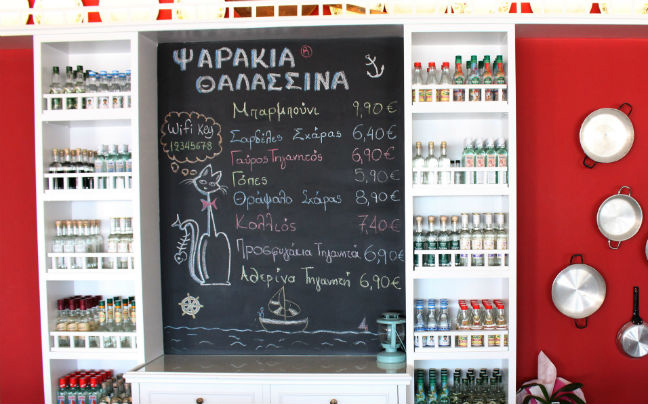 ΨΑΡΑΚΙΑ
ΘΑΛΑΣΣΙΝΑ
Wifi Key
12345678
Μπαρμπούνι 9,90€
Σαρδέλες Σχάρας 6,40€
Γαύρος Τηγανητός 6,90€
Γόπες 5,90€
Θράψαλο Σχάρας 8,90€
Κολλιός 7,40€
Προσφυγάκια Τηγανητά 6,90€
Αθερίνα Τηγανητή 6,90€